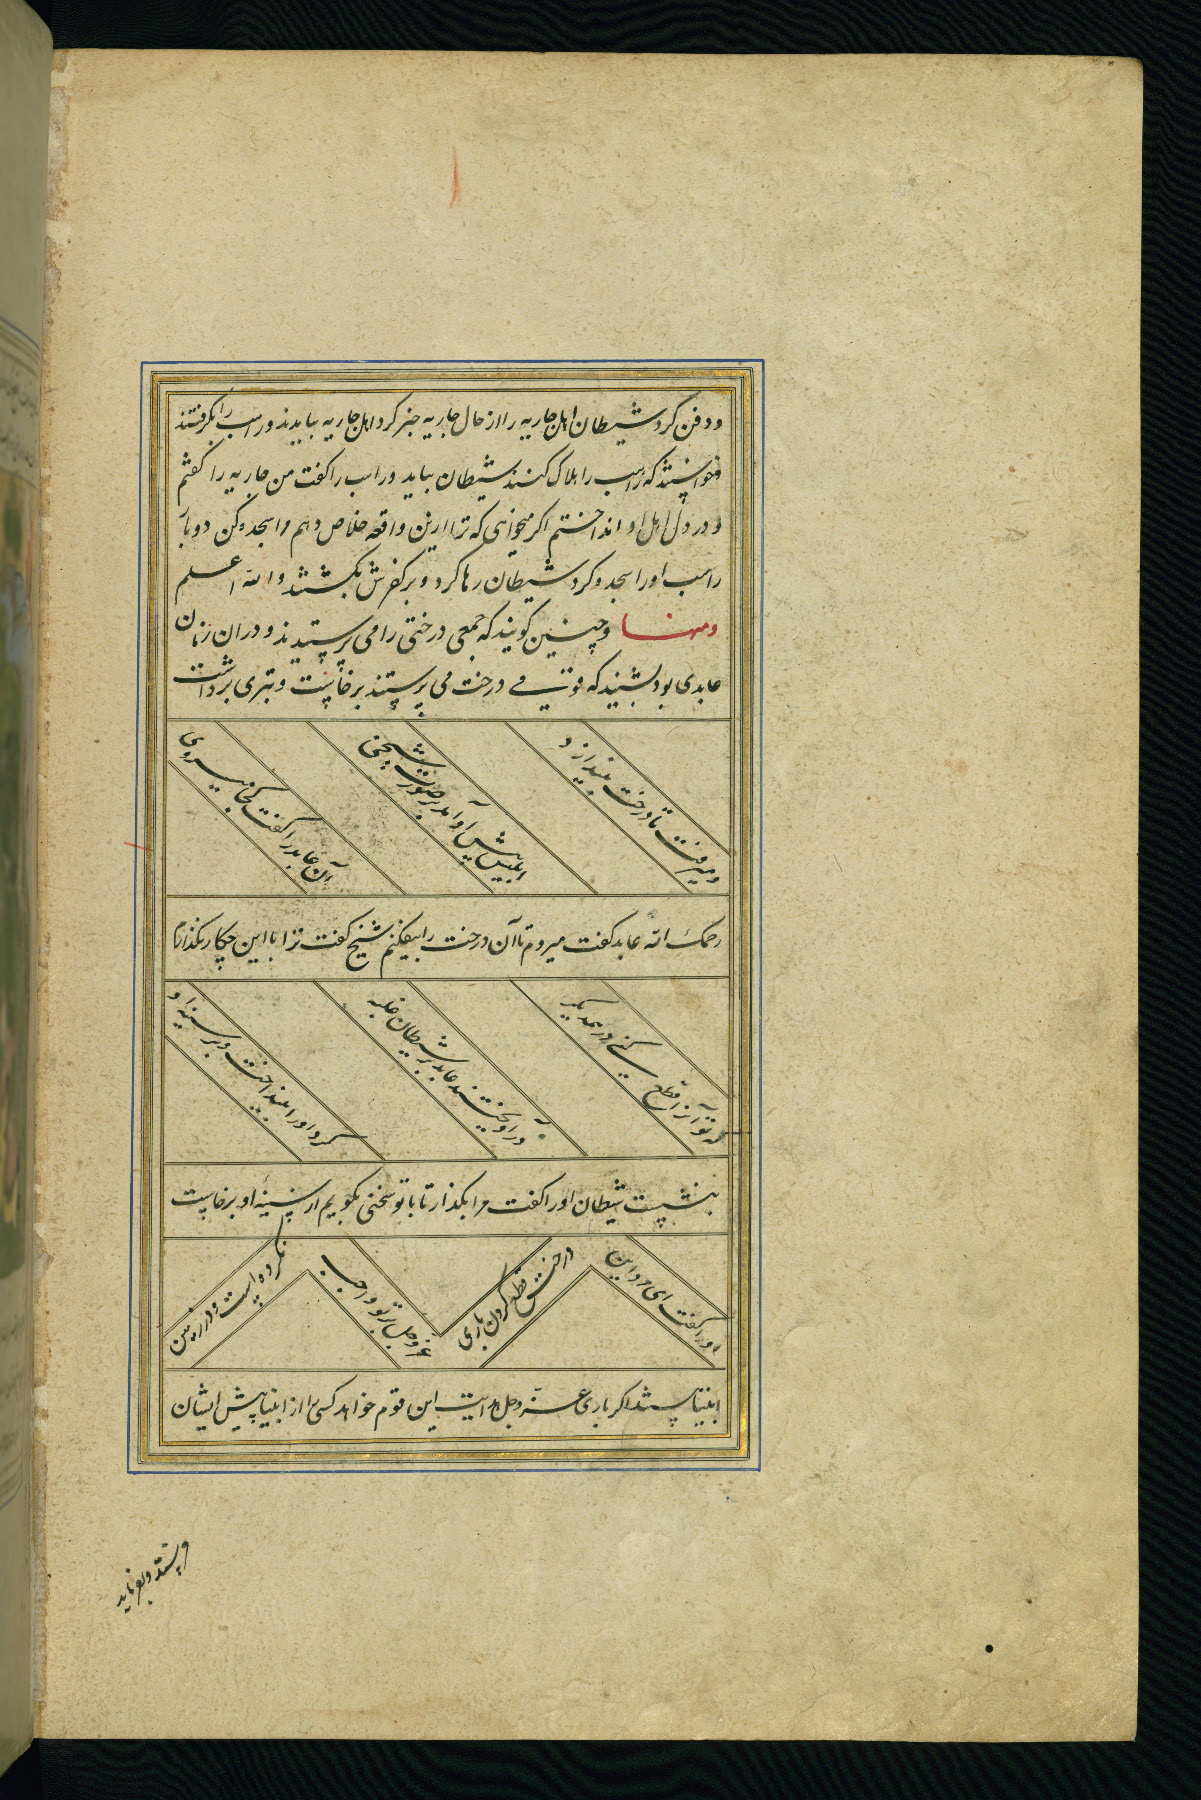 و دفن کرد شیطان اهل جاریه را از حال جاریه خبر کرد اهل جاریه بیایدند و راهب را بکرفتند
و خواستند که راهب را هلاک کنند شیطان بیاید و راهب را کفت من جاریه را کفتم
و در دل اهل او انداختم اکر میخواهی که ترا ازین واقعه خلاص دهم مرا سجده کن دو بار
راهب او را سجده کرد شیطان رها کرد و بر کفرش بکشتند والله اعلم
ومنها و چنین کویند که جمعی درختی را می پرستیدند و در ان زمان
عابدی بود بشنید که قومی درخت می پرستند برخاست و تبری برداشت
و میرفت تا درخت بیندازد
ابلیس پیش او آمد بر صورت شیخی
آن عابد را کفت کجا میروی
رحمک الله عابد کفت میروم تا آن درخت را بیفکنم شیخ کفت ترا با این چکار بکذار تا
که تو آنرا قطع کنی در همدیکر
در آویختند عابد بر شیطان غلبه
کرد او را بینداخت و بر سینه او
بنشست شیطان او را کفت مرا بکذار تا با تو سخنی بکویم از سینه او برخاست
او را کفت ای مرد این
درختش قطع کردن باری
عز و جل بر تو واجب
نکرده است و در زمین
انبیا هستند اکر باری عز و جل هدایت این قوم خواهد کسی را از انبیا پیش ایشان
فرستد و بفرماید